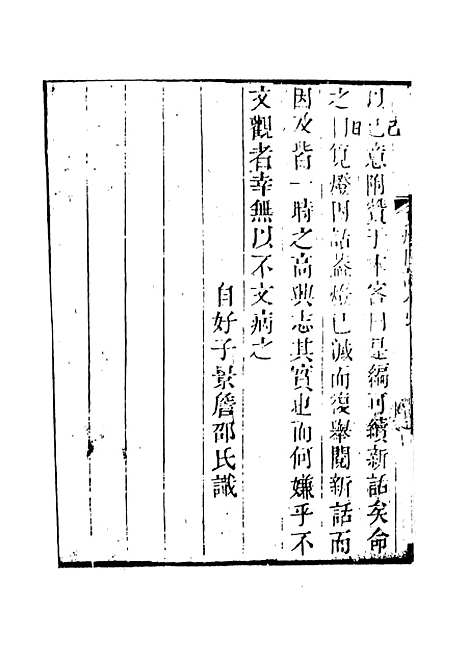 以己意附贊于末客曰是編可續新話矣命
之曰覓燈因話蓋燈已滅而復舉閱新話而
因及皆一時之高興志其實也而何嫌乎不
文觀者幸無以不文病之
自好子景詹邵氏識